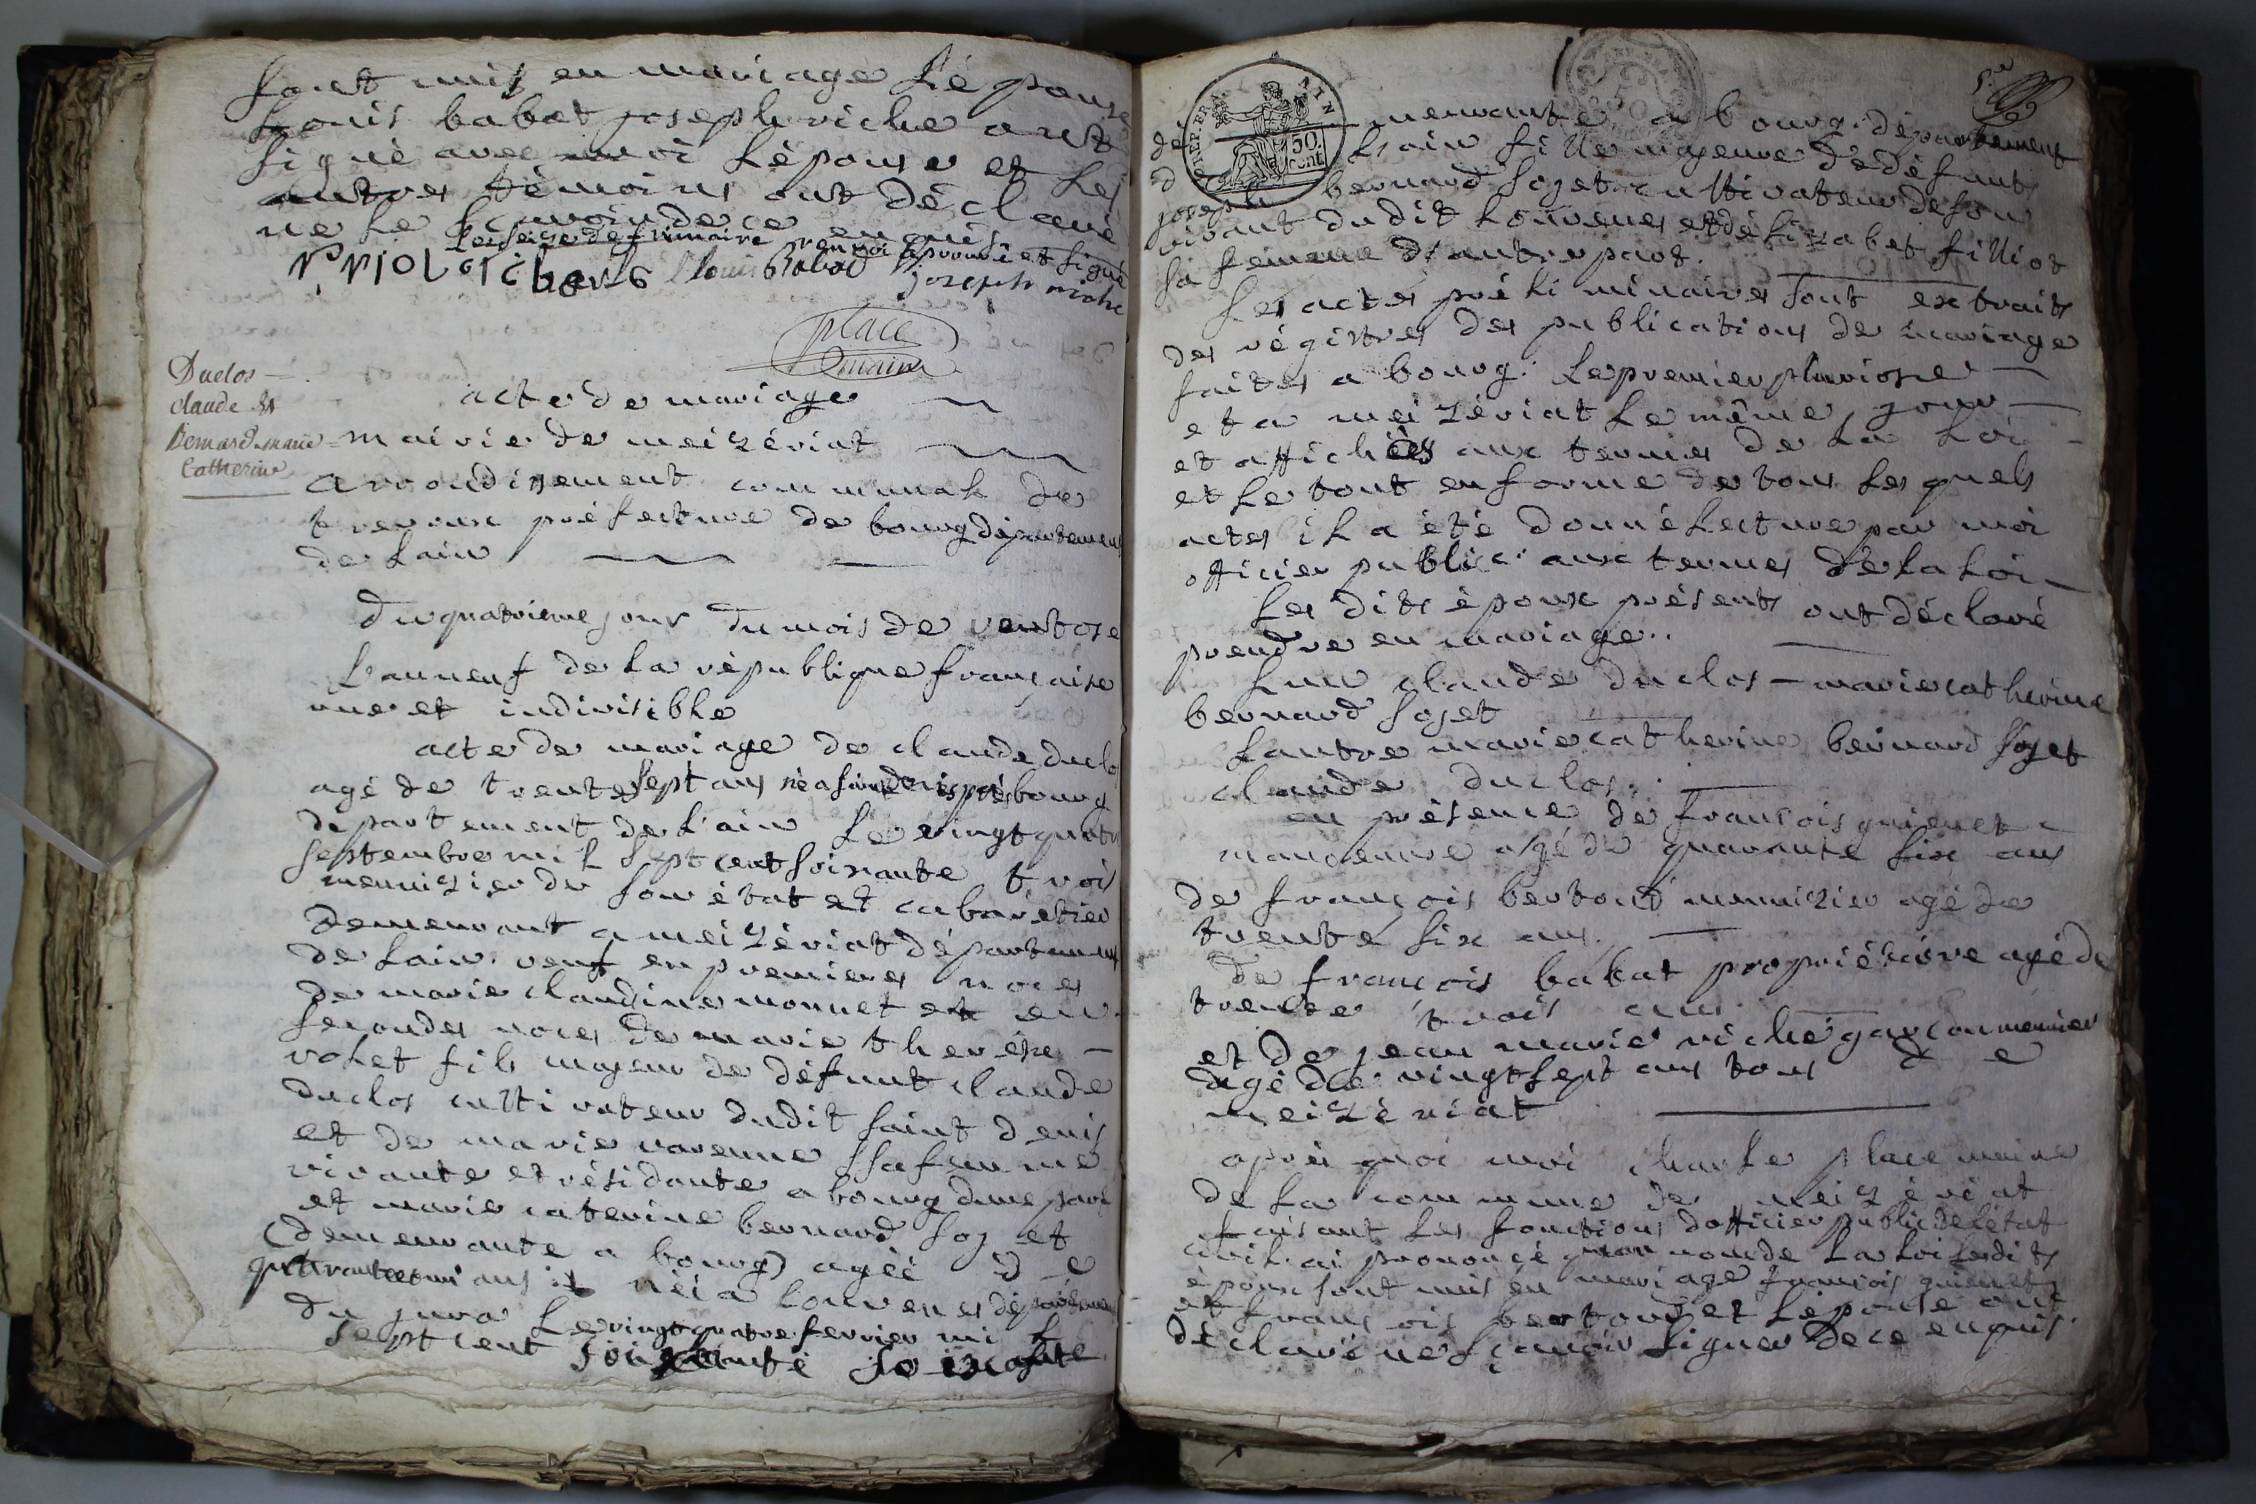 sont unis en mariage L'épouse
Louis babat joseph riche ont
signé avec moi L'épouse et Les
autres témoins ont déclaré
ne le savoir de ce enquis
Le seize de frimaire renvoi aprouvé et signé
Louis Babad joseph riche
place
maire
Duclos
claude &
Bernard marie
Catherine
acte de mariage
mairie de meizériat
arrondissement communal de
trevoux préfecture de bourg département
de Lain
Du quatrieme jour du mois de ventose
L'an neuf de la république française
une et indivisible
acte de mariage de claude duclos
agé de trente sept ans né a saint denis près bourg
département de L'ain Le vingt quatre
septembre mil sept cent soixante trois
menuizier de son état et cabaretier
demeurant a meizériat département
de Lain veuf en premieres noces
de marie claudine monnet et en
secondes noces de marie therese
volet fils majeur de défunt claude
duclos cultivateur dudit saint denis
et de marie varenne sa femme
vivante et résidante a bourg dune part
et marie caterine bernard soget
(demeurante a bourg) agée de
quarante un ans née a Louvenes département
du jura Le vingt quatre fevrier mil
sept cent soixante
REP. FRA
AIN
50
cent.
5.e
demeurante a bourg département
de Lain fille majeure de défunt
joseph bernard soget cultivateur de son
vivant dudit Louvenes et délizabet filliot
sa femme d'autre part.
Les actes préliminaires sont extraits
des régistres des publications de mariage
faites a bourg Le premier pluviose
et a meizériat Le même jour
et affichées aux termes de La Loi
et Le tout en forme de tous Lesquels
actes il a été donné Lecture par moi
officier public aux termes de la Loi
Les dits époux présents ont déclaré
prendre en mariage..
Lun claude duclos - marie catherine
bernard soget
Lautre marie catherine bernard soget
claude duclos.
en présence de françois guienet
agé de quarante six ans
de françois bertoud menuizier agé de
trente six ans.
de françois babat propriétaire agé de
trente trois ans
et de jean marie riche garcon meunier
agé de vingt sept ans tous de
meizériat
après quoi moi charle place maire
de La commune de meizériat
faisant Les fonctions dofficier public de létat
civil ai prononcé quau nom de La Loi Lesdits
époux sont unis en mariage françois guienet
et françois bertoud et Lépouse ont
déclaré ne sçavoir signer de ce enquis.